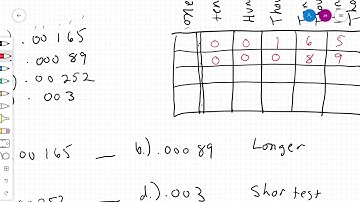 .00165
.00089
) .00252
.003
one
ten
Hun
Thou
0 0 1 6 5
0 0 0 8 9
00165 __ b.) .00089 Longer
d.) .003 Shortest